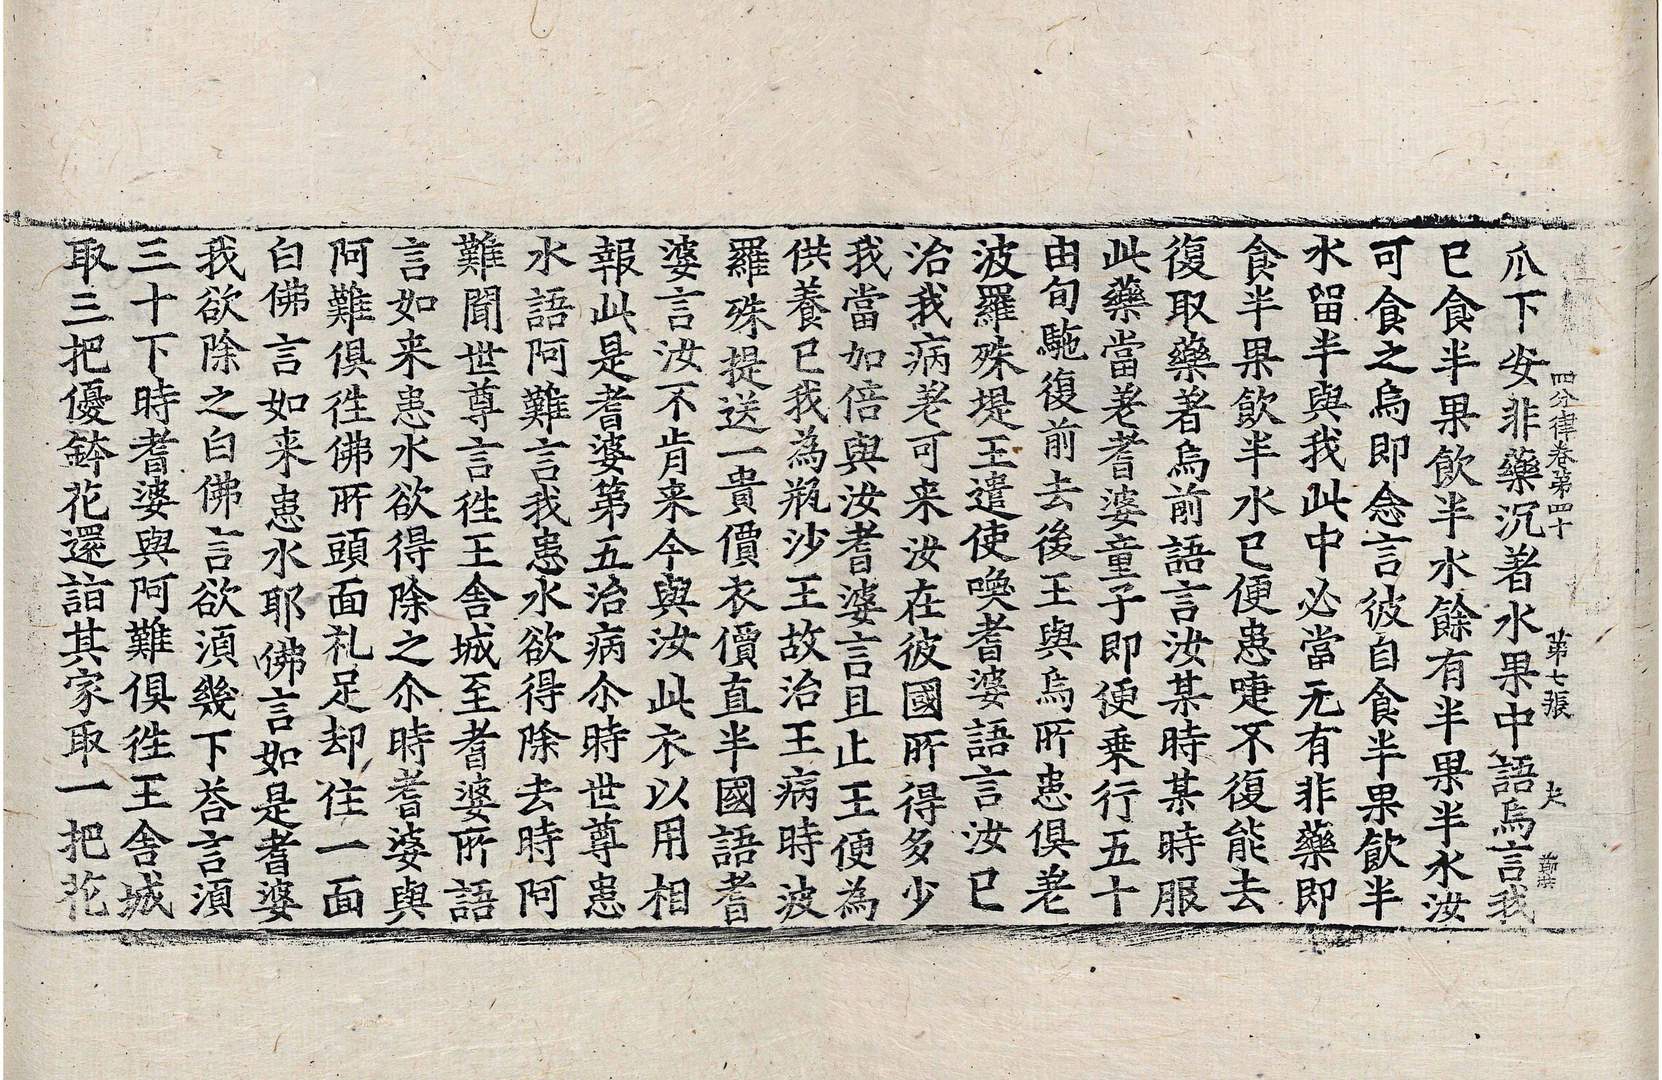 爪下安非藥沉著水果中語烏言我
四分律卷第四十　第七張
已食半果飲半水餘有半果半水汝
可食之烏即念言彼自食半果飲半
水留半與我此中必當无有非藥即
食半果飲半水已便患嚏不復能去
復取藥著烏前語言汝某時某時服
此藥當差耆婆童子即便乗行五十
由旬馳復前去後王與烏所患俱差
波羅殊堤王遣使喚耆婆語言汝已
治我病差可来汝在彼國所得多少
我當加倍與汝耆婆言且止王便為
供養已我為瓶沙王故治王病時波
羅殊提送一貴價衣價直半國語耆
婆言汝不肯来今與汝此衣以用相
報此是耆婆第五治病尒時世尊患
水語阿難言我患水欲得除去時阿
難聞世尊言徃王舎城至耆婆所語
言如来患水欲得除之尒時耆婆與
阿難俱徃佛所頭面礼足却住一面
白佛言如来患水耶佛言如是耆婆
我欲除之白佛言欲須幾下荅言須
三十下時耆婆與阿難俱徃王舎城
取三把優鉢花還詣其家取一把花